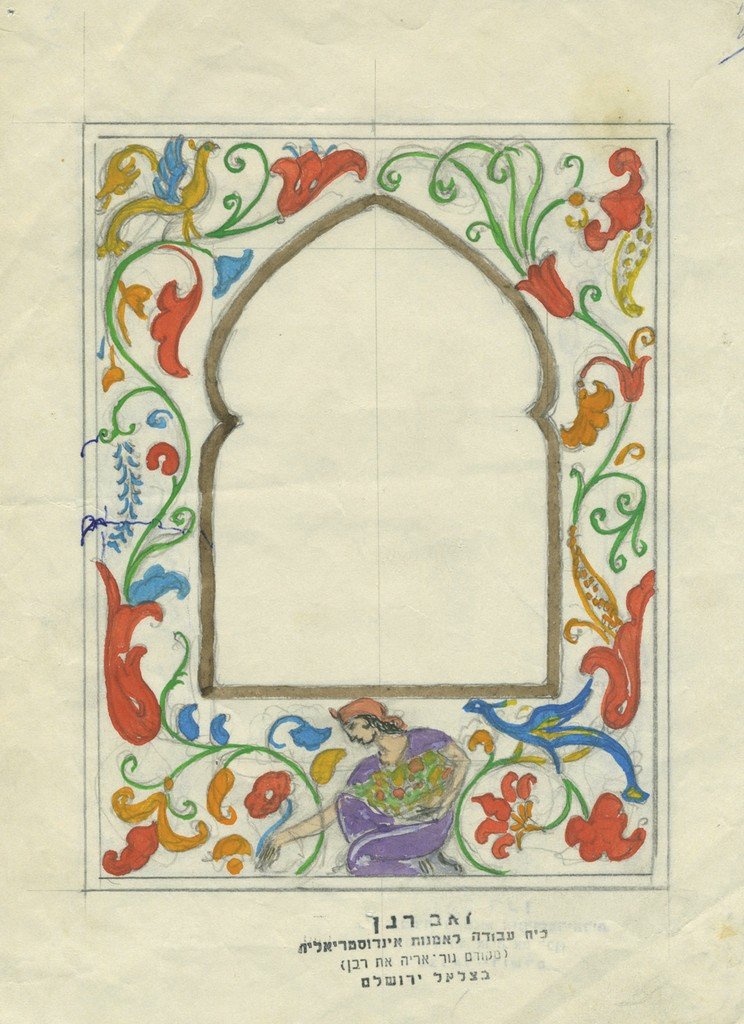 זאב רבן
בית עבודה לאמנות אינדוסטריאלית
(מקודם גור־אריה את רבן)
בצלאל ירושלם